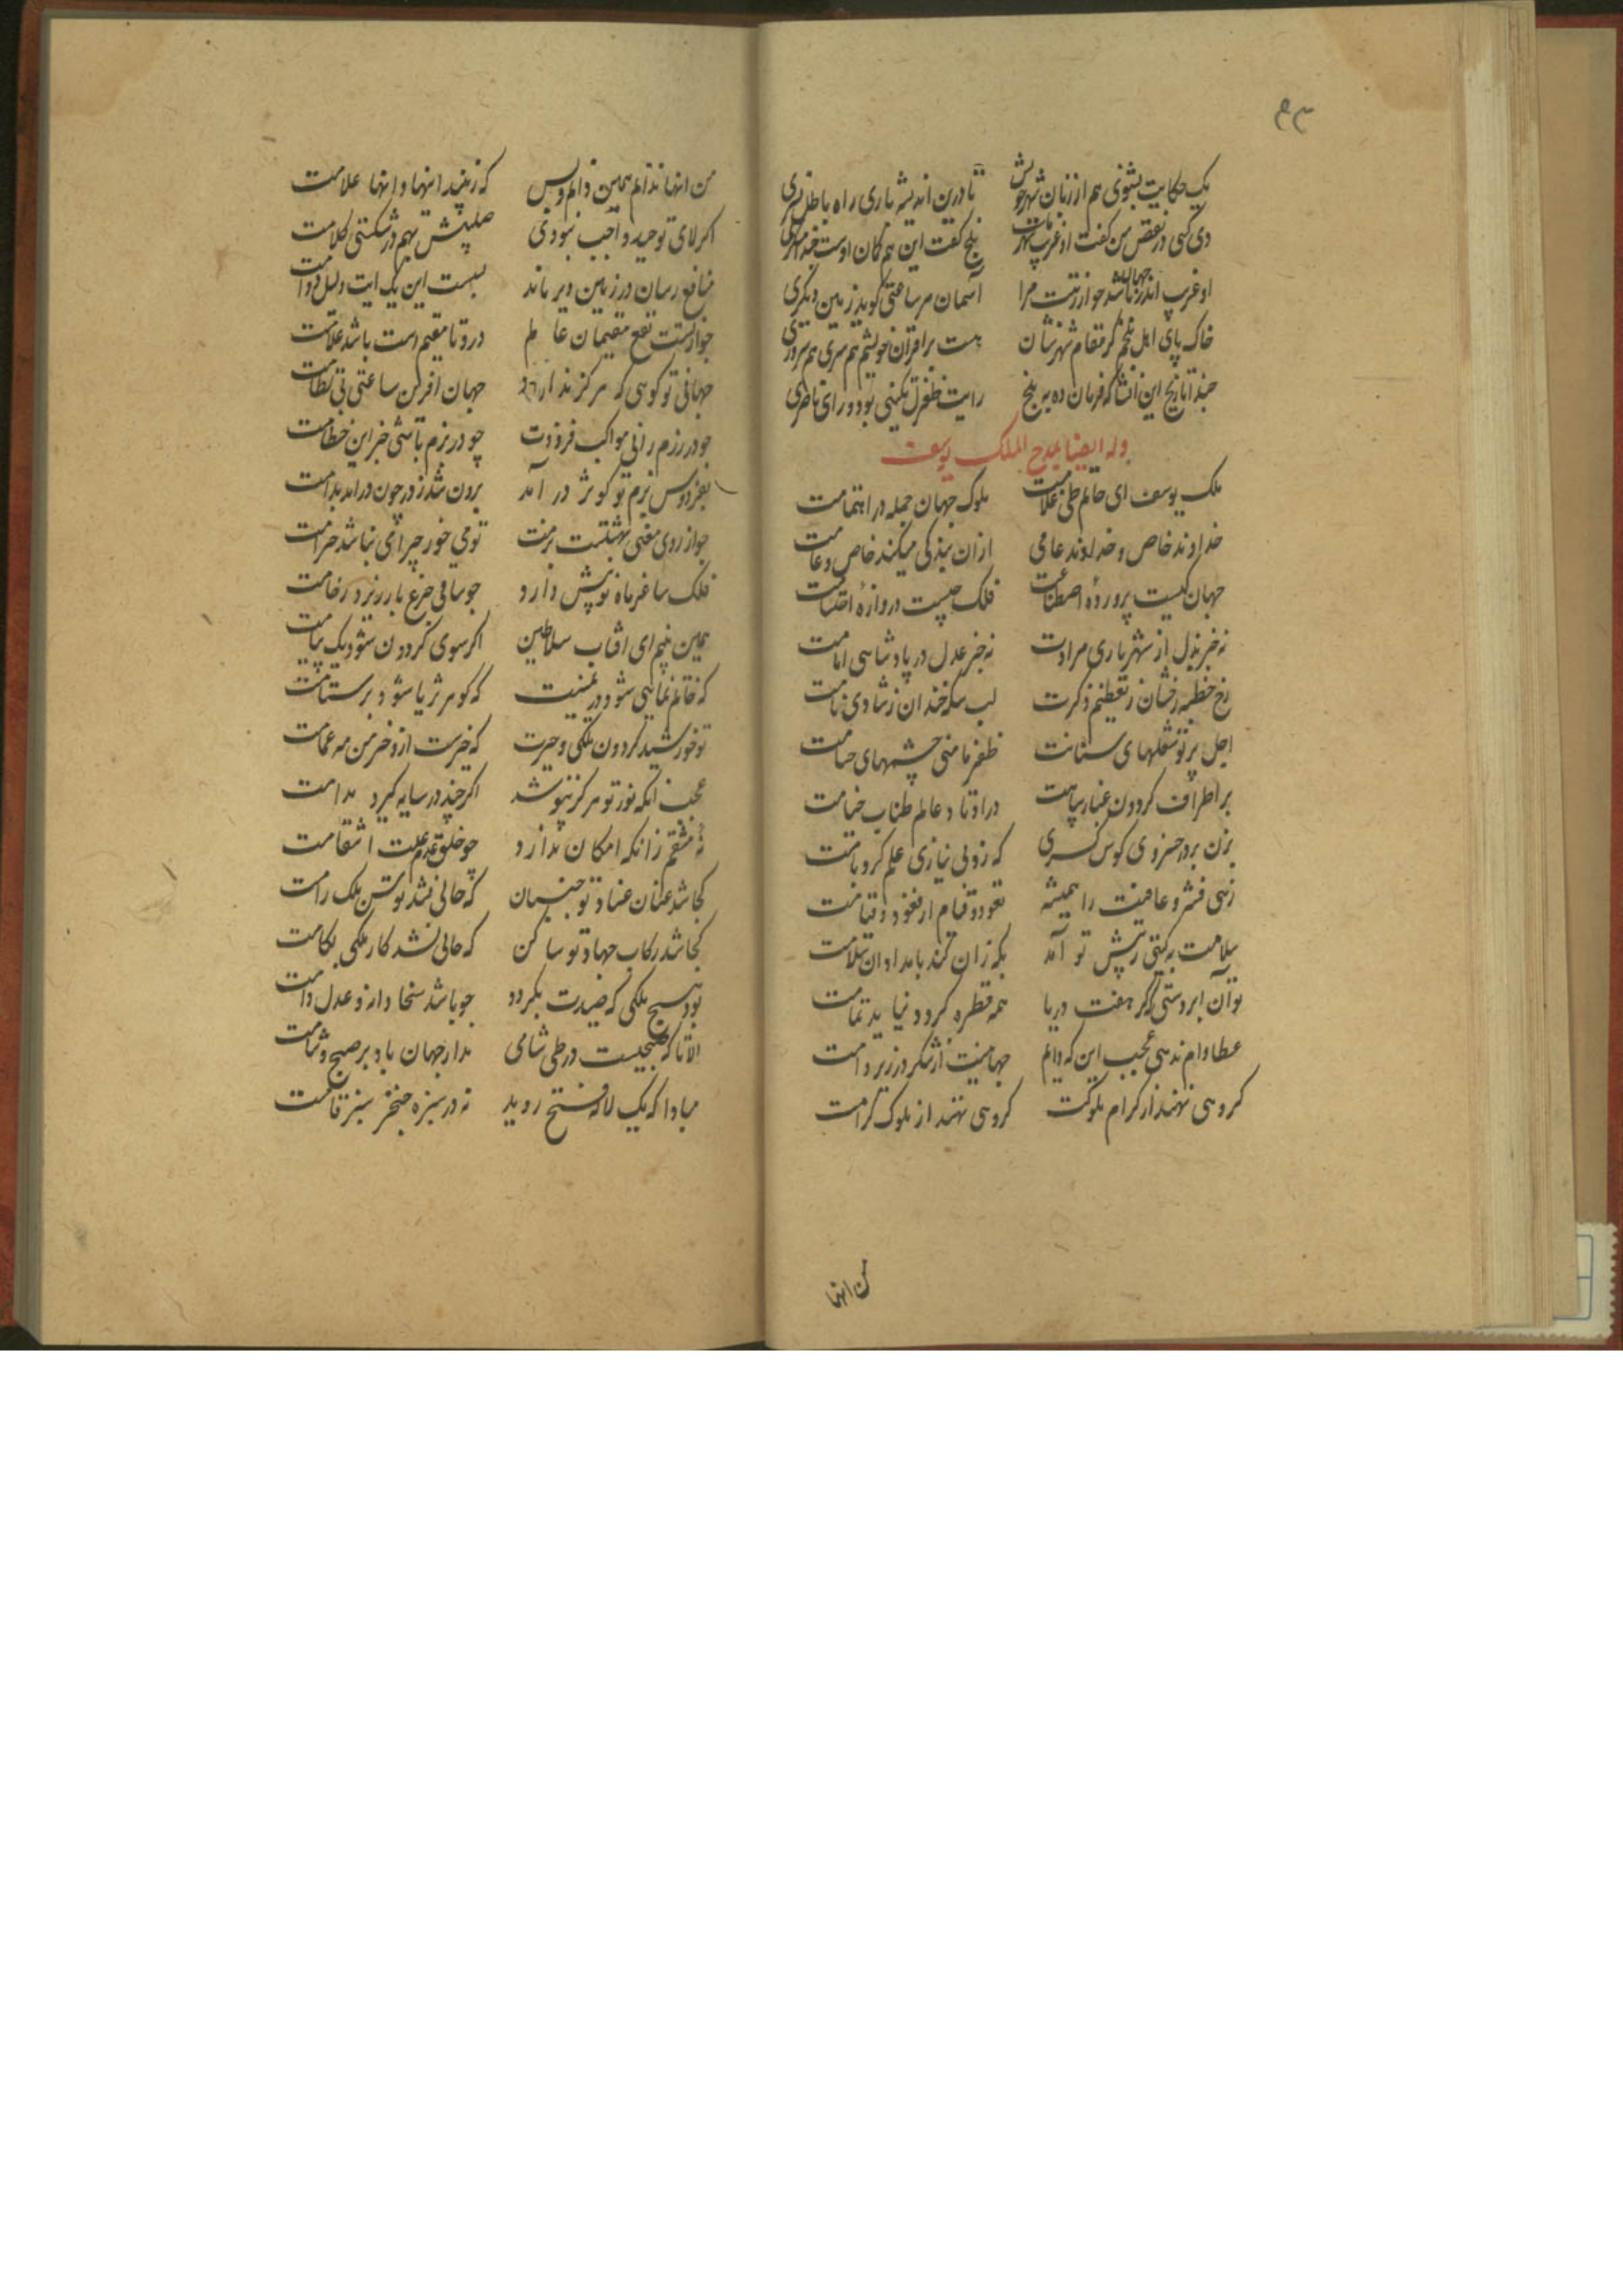 ۹۳
یک حکایت بشنوی هم از زبان شهر خویش تا درین اندیشه باری راه باطل نسپری
دی کسی در نقض من گفت او غریب شهر ماست بلخ گفت این هم کمان اوست
او غریب اندر جهان باشد چو از رتبت مرا آسمان هر ساعتی گوید زمین دیگری
خاک پای اهل بلخم کز مقام شهرشان هست بر اقران خویشم هم سری هم سروری
حبذا تاریخ این انشا که فرمان ده به بلخ رایت طغرل تکینی بود و رای ناصری
وله ایضا یمدح الملک یوسف
ملک یوسف ای حاتم طی غلامت ملوک جهان جمله در اهتمامت
خداوند خاص و خداوند عامی ازان بندگی میکند خاص و عامت
جهان کیست پرورده اصطناعت فلک چیست دروازهٔ احتشامت
نه جز بذل از شهریاری مرادت نه جز عدل در پادشاهی امامت
رخ خطبه رخشان ز تعظیم ذکرت لب سکه خندان ز شادی نامت
اجل پرتو شعلهای سنانت ظفر ماهی چشمهای حسامت
بر اطراف گردون غبار سپاهت در اوتاد عالم طناب خیامت
بزن بر در خسروی کوس کسری که زد بی نیازی علم گرد بامت
زهی فتنه و عافیت را همیشه قعود و قیام از قعود و قیامت
سلامت به گیتی ز پیش تو آمد که زان کند بامدادان سلامت
تو آن ابردستی که گر هفت دریا همه قطره گردد نیاید تمامت
عطا وام ندهی عجب این که دایم جهانیست از شکر در زیر وامت
گروهی نهند از کرام ملوکت گروهی نهند از ملوک کرامت
من اینها
من اینها ندانم همین دانم و بس که زیبد اینها و اینها علامت
اگر لای توحید واجب نبودی صلیبش بهم در شکستی کلامت
منافع رسان در زمین دیر ماند بس است این یک ایت دلیل دوامت
چو از تست نفع مقیمان عالم درو تا مقیم است باشد مقامت
جهانی تو گویی که هرگز ندارد جهان آفرین ساعتی بی نظامت
چو در رزم رانی مواکب فروزت چو در بزم باشی خزاین خطامت
بفردوس بزم تو کوثر در آمد برون شد ز در چون درامد مدامت
چو از روی معنی بهشتست بزمت تو می خور چرا می نباشد حرامت
فلک ساغر ماه نو پیش دارد چو ساقی جرع باز ریزد ز جامت
همین بینم ای افتاب سلاطین اگر سوی گردون شود یک پیامت
که خاتم نمایی شود در یمینت که گوهر ثریا شود بر ستامت
تو خورشید گردون ملکی و چترت که خیرست ازو خرمن مه غمامت
عجب آنکه نور تو هرگز نپوشد اگر چند در سایه گیرد مدامت
نه منتقم زانکه امکان ندارد چو خلق عدم علت انتقامت
کجا شد عنان عناد تو جنبان که حالی نشد توسن ملک رامت
کجا شد رکاب جهاد تو ساکن که حالی نشد کار ملکی بکامت
بود هیچ ملکی که صیدت نگردد چو باشد سخا دانه و عدل دامت
الا تا که صبحیست در طی شامی مدار جهان باد بر صبح و شامت
مبادا که یک لاله فتح روید نه در سبزه خنجر سبز فامت